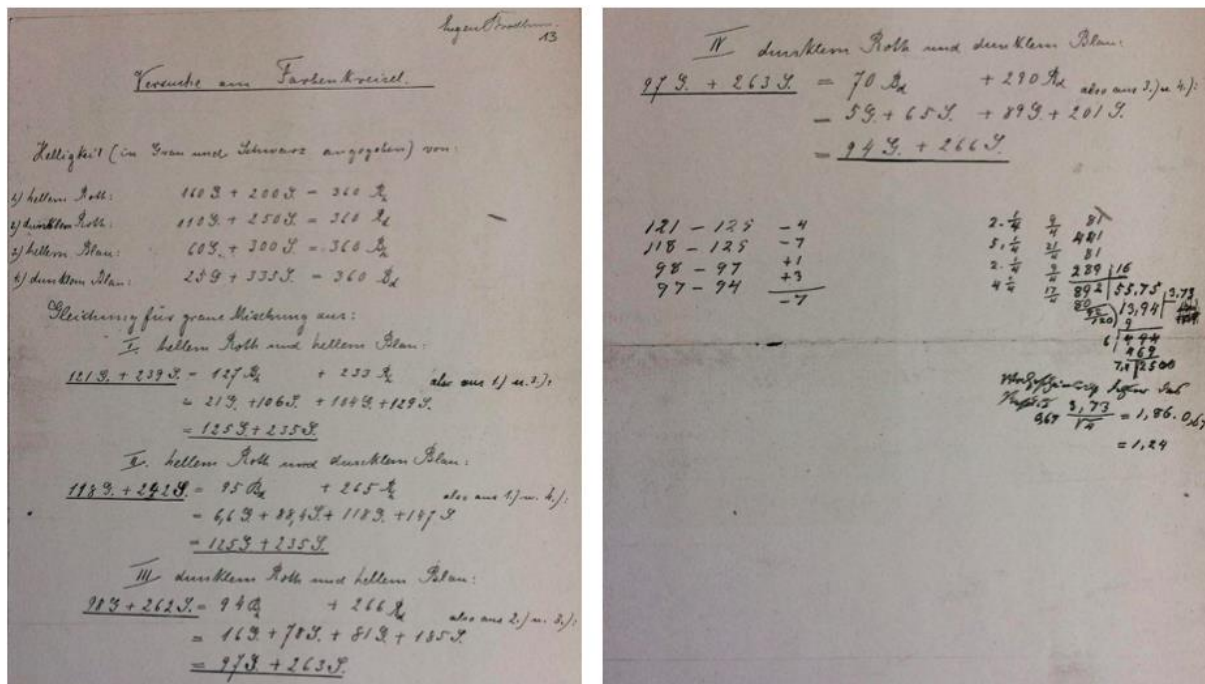 Eugen Brodhun.
13
Versuche am Farbenkreisel.
Helligkeit (in Grau und Schwarz angegeben) von:
1) hellem Roth: 160 G. + 200 S. = 360 R_h
2) dunklem Roth: 110 G. + 250 S. = 360 R_d
3) hellem Blau: 60 G. + 300 S. = 360 B_h
4) dunklem Blau: 25 G + 335 S. = 360 B_d
Gleichung für graue Mischung aus:
I. hellem Roth und hellem Blau:
121 G. + 239 S. = 127 B_h + 233 R_h also aus 1.) u. 3.):
= 21 G. + 106 S. + 104 G. + 129 S.
= 125 G. + 235 S.
II. hellem Roth und dunklem Blau:
118 G. + 242 S. = 95 B_d + 265 R_h also aus 1.) u. 4.):
= 6,6 G. + 88,4 S. + 118 G. + 147 S.
= 125 G. + 235 S.
III. dunklem Roth und hellem Blau:
98 G + 262 S. = 94 B_h + 266 R_d also aus 2.) u. 3.):
= 16 G. + 78 S. + 81 G. + 185 S.
= 97 G. + 263 S.
IV dunklem Roth und dunklem Blau:
97 G. + 263 S. = 70 B_d + 290 R_d also aus 3.) u. 4.):
= 5 G. + 65 S. + 89 G. + 201 S.
= 94 G. + 266 S.
121 - 125 -4 2.¼ 9/4 81
118 - 125 -7 5.¼ 21/4 441
98 - 97 +1 2.¼ 9/4 81
97 - 94 +3 4¼ 17/4 289 | 16
-7 892 | 55,75
80 13,94 | 3,73
92
120 9
6 | 494
469
7,4 | 2500
das
0,67 3,73/√4 = 1,86. 0,67
= 1,24